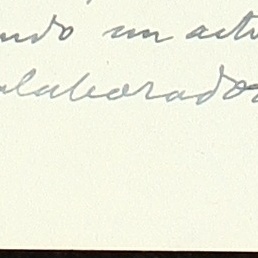 ndo un acti
olaborador